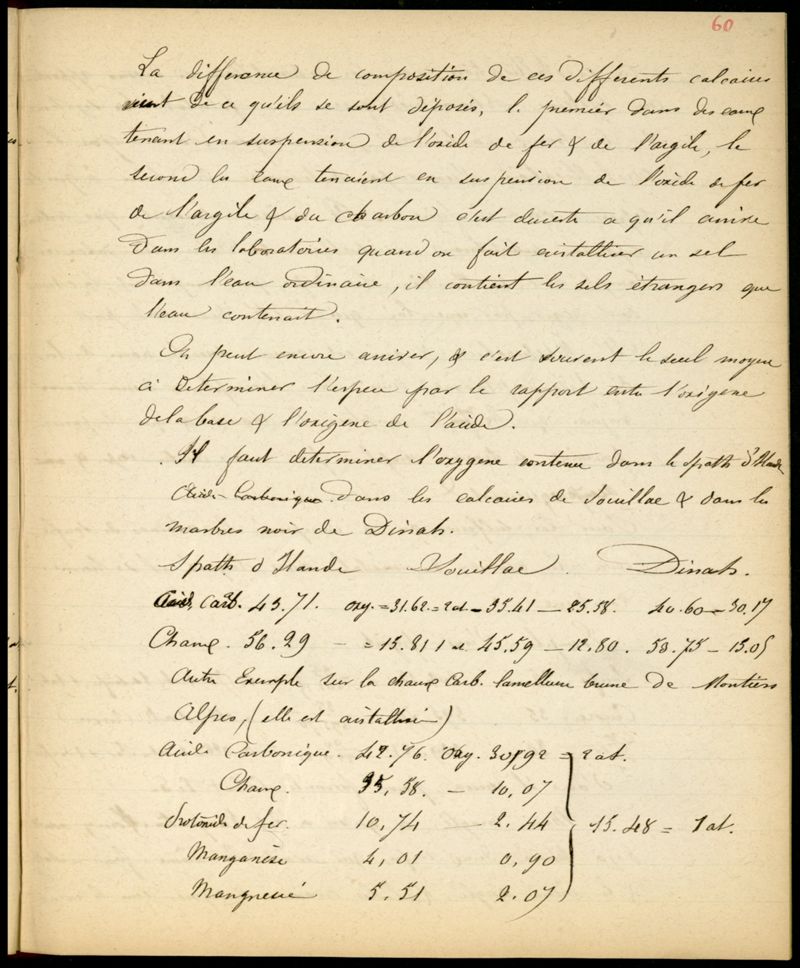 60
La difference de composition de ces differents calcaires
vient de ce qu'ils se sont déposés, le premier dans des eaux
tenant en suspension de l'oxide de fer & de l'argile, le
second les eaux tenaient en suspension de l'oxide de fer
de l'argile & du charbon c'est du reste ce qu'il arrive
dans les laboratoires quand on fait cristalliser un sel
dans l'eau ordinaire, il contient les sels étrangers que
l'eau contenait.
On peut encore arriver, & c'est souvent le seul moyen
à determiner l'espece par le rapport entre l'oxigene
de la base & l'oxigene de l'acide.
Il faut determiner l'oxygene contenu dans le spath d'Islande
Acide Carbonique dans les calcaires de Souillac & dans les
marbres noir de Dinah.
Spath d Islande Souillac. Dinah.
Acid. Carb. 43.71. oxy. = 31.62 = 2 at – 35.41 – 25.58. 40.60 – 30.17
Chaux. 56.29 – = 15.81 1 at. 45.59 – 12.80. 53.75 – 15.05
Autre Exemple sur la chaux Carb. lamelleuse brune de Moutiers
Alpes, (elle est cristallisée)
Acide Carbonique. 42.76. Oxy. 30,92 = 2 at.
Chaux. 35,58. – 10,07
Protoxide de fer. 10,74 – 2.44 15.48 = 1 at.
Manganèse 4,01 0,90
Mangnesié 5.51 2.07